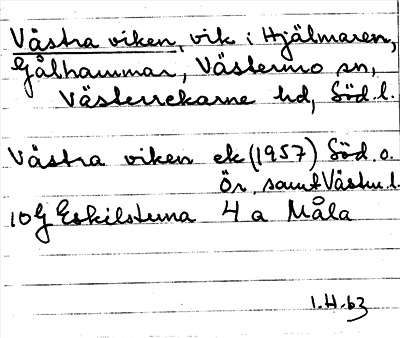 Västra viken, vik i Hjälmaren,
Gålhammar, Västermo sn,
Västerrekarne hd, Söd. l.
Västra viken ek (1957) Söd. o.
Ör. samt Västm l.
10G Eskilstuna 4 a Måla
1.4.63